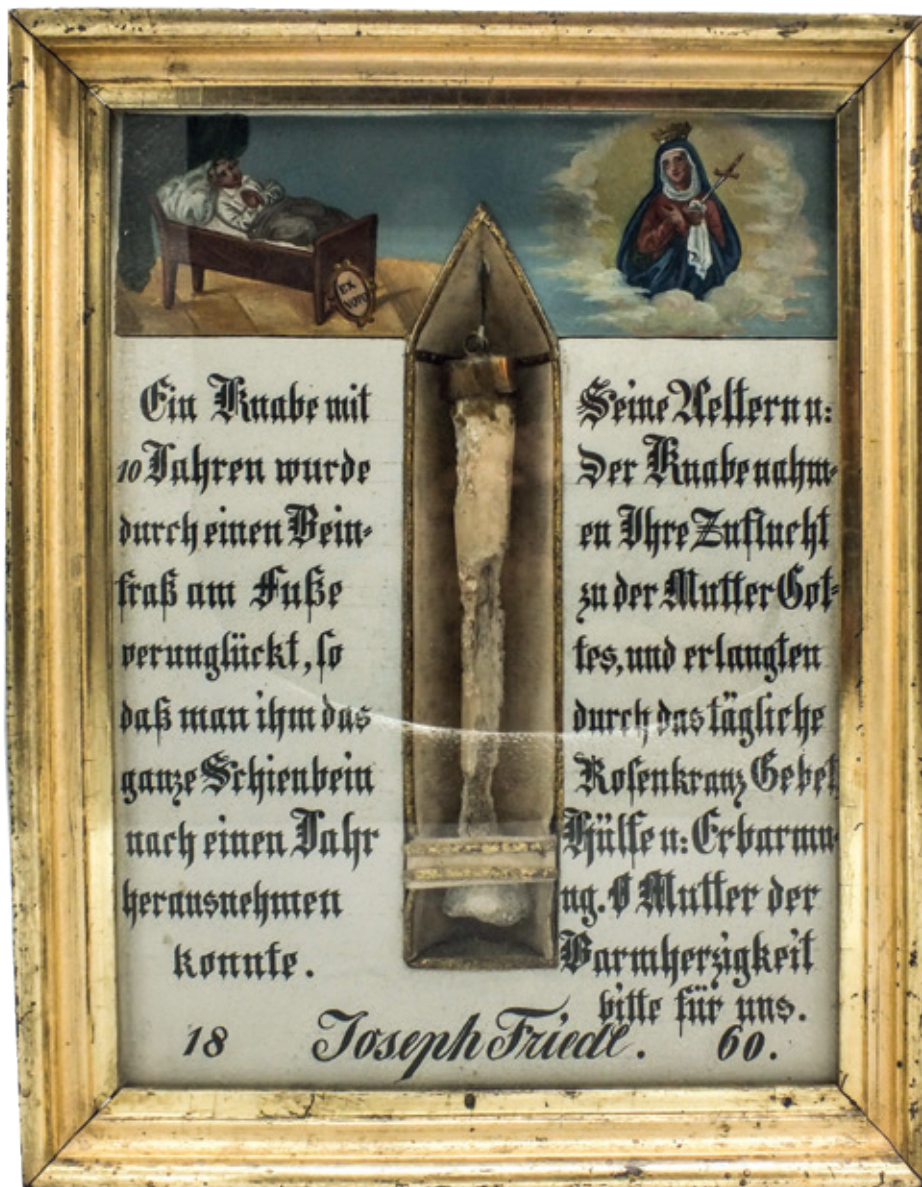 EX
VOTO
Ein Knabe mit
10 Jahren wurde
durch einen Bein-
fraß am Fuße
verunglückt, so
daß man ihm das
ganze Schienbein
nach einen Jahr
herausnehmen
konnte.
Seine Aeltern u:
Der Knabe nahm-
en Ihre Zuflucht
zu der Mutter Got-
tes, und erlangten
durch das tägliche
Rosenkranz Gebet
Hülfe u: Erbarmu-
ng. O Mutter der
Barmherzigkeit
bitte für uns.
18 Joseph Friedl. 60.